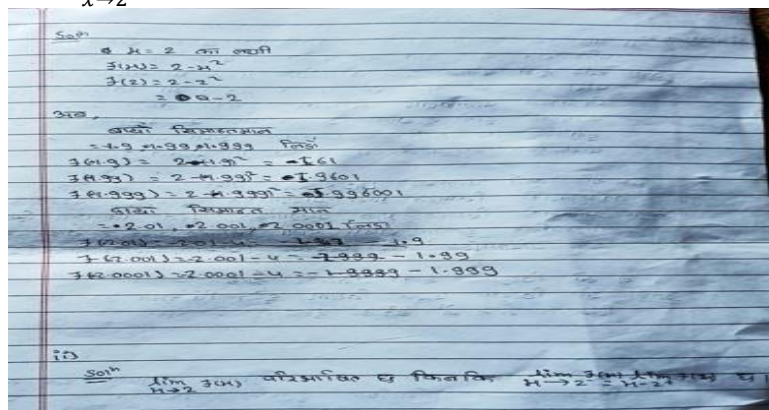 x→2
Soln
x = 2 का लागी
f(x) = 2 - x²
f(2) = 2 - 2²
= -2
अब,
बायाँ सिमान्त मान
= 1.9, 1.99, 1.999 लिदाँ
f(1.9) = 2 - (1.9)² = -1.61
f(1.99) = 2 - (1.99)² = -1.9601
f(1.999) = 2 - (1.999)² = -1.996001
दायाँ सिमान्त मान
= 2.01, 2.001, 2.0001 लिदा
f(2.01) = 2.01 - 4 = - 1.9
f(2.001) = 2.001 - 4 = - 1.99
f(2.0001) = 2.0001 - 4 = - 1.999
ii)
Soln
lim x→2 f(x) परिभाषित छ किनकि lim x→2⁻ f(x) = lim x→2⁺ f(x) छ।